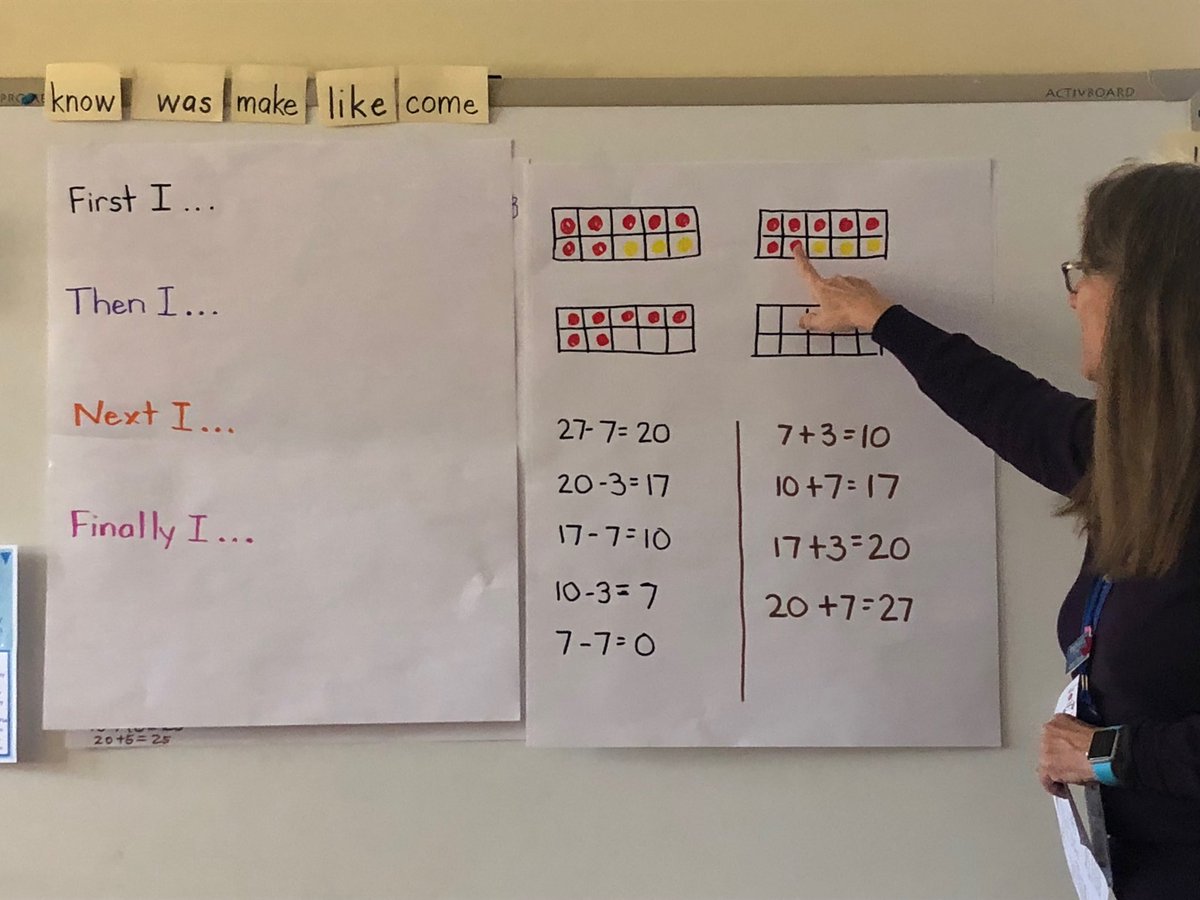 know was make like come
ACTIVBOARD
First I...
Then I...
Next I...
Finally I...
27-7=20
20-3=17
17-7=10
10-3=7
7-7=0
7+3=10
10+7=17
17+3=20
20+7=27
20+5=25